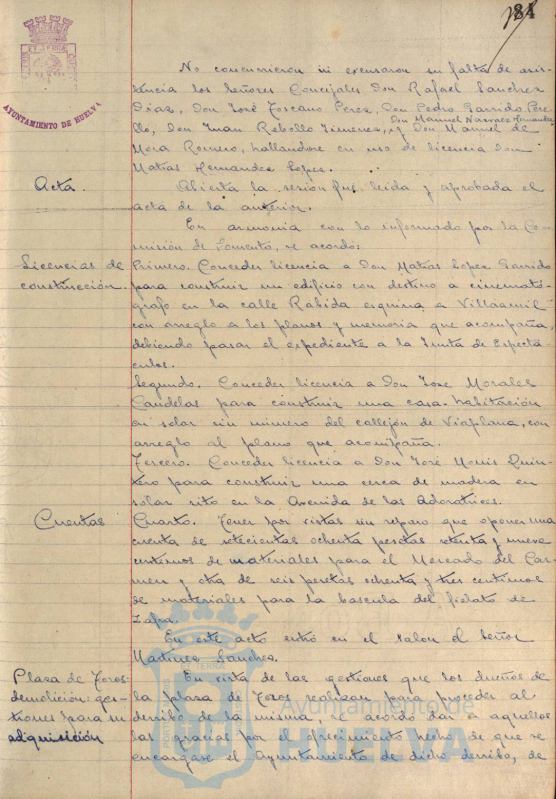 84
AYUNTAMIENTO DE HUELVA
No concurrieron ni excusaron su falta de asis-
tencia los Señores Concejales Don Rafael Sanchez
Diaz, Don José Toscano Perez, Don Pedro Garrido Pere-
llo, Don Juan Rebollo Jimenez, y Don Manuel de
Don Manuel Narvaez Hernandez
Mora Romero, hallandose en uso de licencia Don
Matías Hernandez Lopez.
Acta.
Abierta la sesión fué leida y aprobada el
acta de la anterior.
En armonia con lo informado por la Co-
misión de Fomento, se acordó:
Licencias de
construcción.
Primero. Conceder licencia a Don Matías Lopez Garrido
para construir un edificio con destino a cinemató-
grafo en la calle Rábida esquina a Villaamil
con arreglo a los planos y memoria que acompaña,
debiendo pasar el expediente a la Junta de Espectá-
culos.
Segundo. Conceder licencia a Don José Morales
Candelas para construir una casa-habitación
en solar sin número del callejón de Viaplana, con
arreglo al plano que acompaña.
Tercero. Conceder licencia a Don José Monis Quin-
tero para construir una cerca de madera en
solar sito en la Avenida de las Adoratrices.
Cuentas
Cuarto. Tener por vistas sin reparo que oponer una
cuenta de setecientas ochenta pesetas setenta y nueve
centimos de materiales para el Mercado del Car-
men y otra de seis pesetas ochenta y tres centimos
de materiales para la bascula del fielato de
Zafra.
En este acto entró en el Salon el Señor
Martinez Sanchez.
Plaza de Toros-
demolición: ges-
tiones para su
adquisición
En vista de las gestiones que los dueños de
la plaza de Toros realizan para proceder al
derribo de la misma, se acordó dar a aquellos
las gracias por el ofrecimiento hecho de que se
encargase el Ayuntamiento de dicho derribo, de
Ayuntamiento de
HUELVA